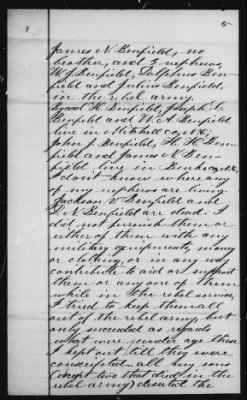 5
James N Benfield, no
brother, and 3 nephews,
W. J. Benfield, Delphus Ben
field and Julius Benfield,
in the rebel army.
Byard H. Benfield, Joseph
Benfield and W. A. Benfield
live in Mitchell co, N.C.;
John J. Benfield, H. H. Ben
field and James N Ben
field live in Burke co N.C.
I dont know where any
of my nephews are living.
Jackson Benfield and
L. N. Benfield are dead. I
did not furnish them or
either of them with any
military equipments, money
or clothing, or in any way
contribute to aid or support
them or any one of them
while in the rebel service.
I tried to keep them all
out of the rebel army, but
only succeeded as regards
what were under age these
I kept out till they were
conscripted. all my sons
(except two that died in the
rebel army) deserted the